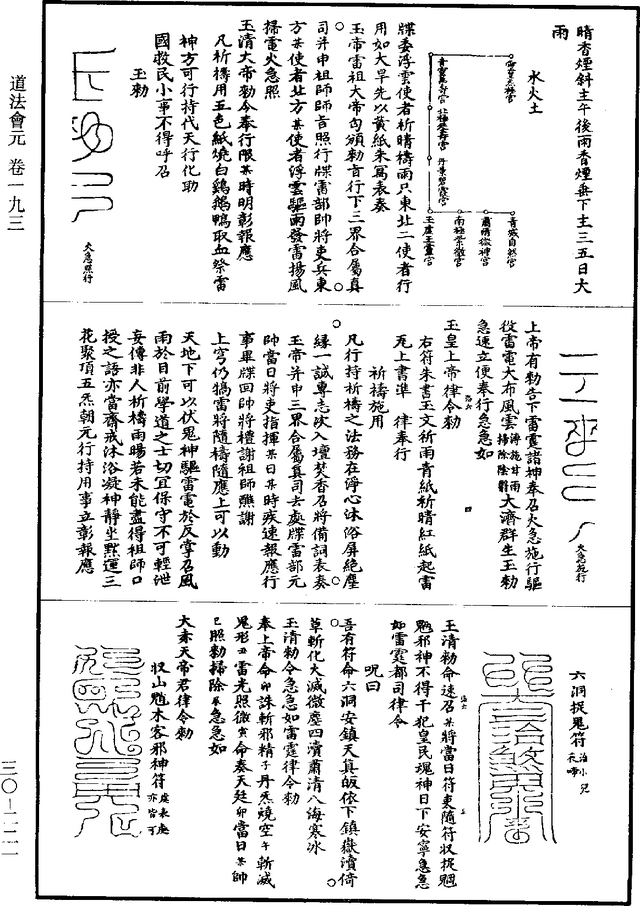 道法會元 卷一九三
三〇—二二一
晴香煙斜主午後雨香煙垂下主三五日大
雨
水火土
青城自然宮
肅清微神宮
南極紫微宮
玉虛玉華宮
牒委浮雲使者祈晴禱雨只東北二使者行
用如大旱先以黃紙朱寫表奏
玉帝雷祖大帝勾頒勑旨行下三界合屬真
司并申祖師師旨照行牒雷部帥將吏兵東
方某使者北方某使者浮雲驅雨發雷揚風
掃電火急照
玉清大帝勑令奉行限某時明彰報應
凡祈禱用五色紙燒白鷄鵝鴨取血祭雷
神方可行持代天行化助
國救民小事不得呼召
玉勑
火急照行
火急施行
上帝有勑告下雷霆諸神奉召火急施行驅
役雷電大布風雲滂施甘雨掃除陰翳大濟群生玉勑
急速立便奉行急急如
玉皇上帝律令勑
右符朱書玉文祈雨青紙祈晴紅紙起雷
炁上書準 律奉行
祈禱施用
凡行持祈禱之法務在淨心沐浴屏絶塵
緣一誠專志次入壇焚香召將備詞表奏
玉帝并申三界合屬真司去處牒雷部元
帥當日將吏指揮某日某時疾速報應行
事畢牒回帥將禮謝祖師醮謝
上穹仍犒雷將隨禱隨應上可以動
天地下可以伏鬼神驅雷電於反掌召風
雨於目前學道之士切宜保守不可輕泄
妄傳非人祈禱雨暘若未能盡得祖師口
授之語亦當齋戒沐浴凝神靜坐黙運三
花聚頂五炁朝元行持用事立彰報應
六洞捉鬼符 治小兒花啼
玉清勑命速召某將當日符吏隨符收捉魍
魎邪神不得干犯皇民瑰神日下安寧急急
如雷霆都司律令
呪曰
吾有符命六洞安鎮天真皈依下鎮嶽瀆倚
草斬化大滅微塵四瀆肅清八海寒冰
玉清勑令急急如雷霆律令勑
奉上帝命卯誅斬邪精子丹炁燒空午斬滅
鬼形丑雷光照微寅命奏天廷卯當日某帥
巳照勑掃除某急急如
大赤天帝君律令勑
収山魈木客邪神符